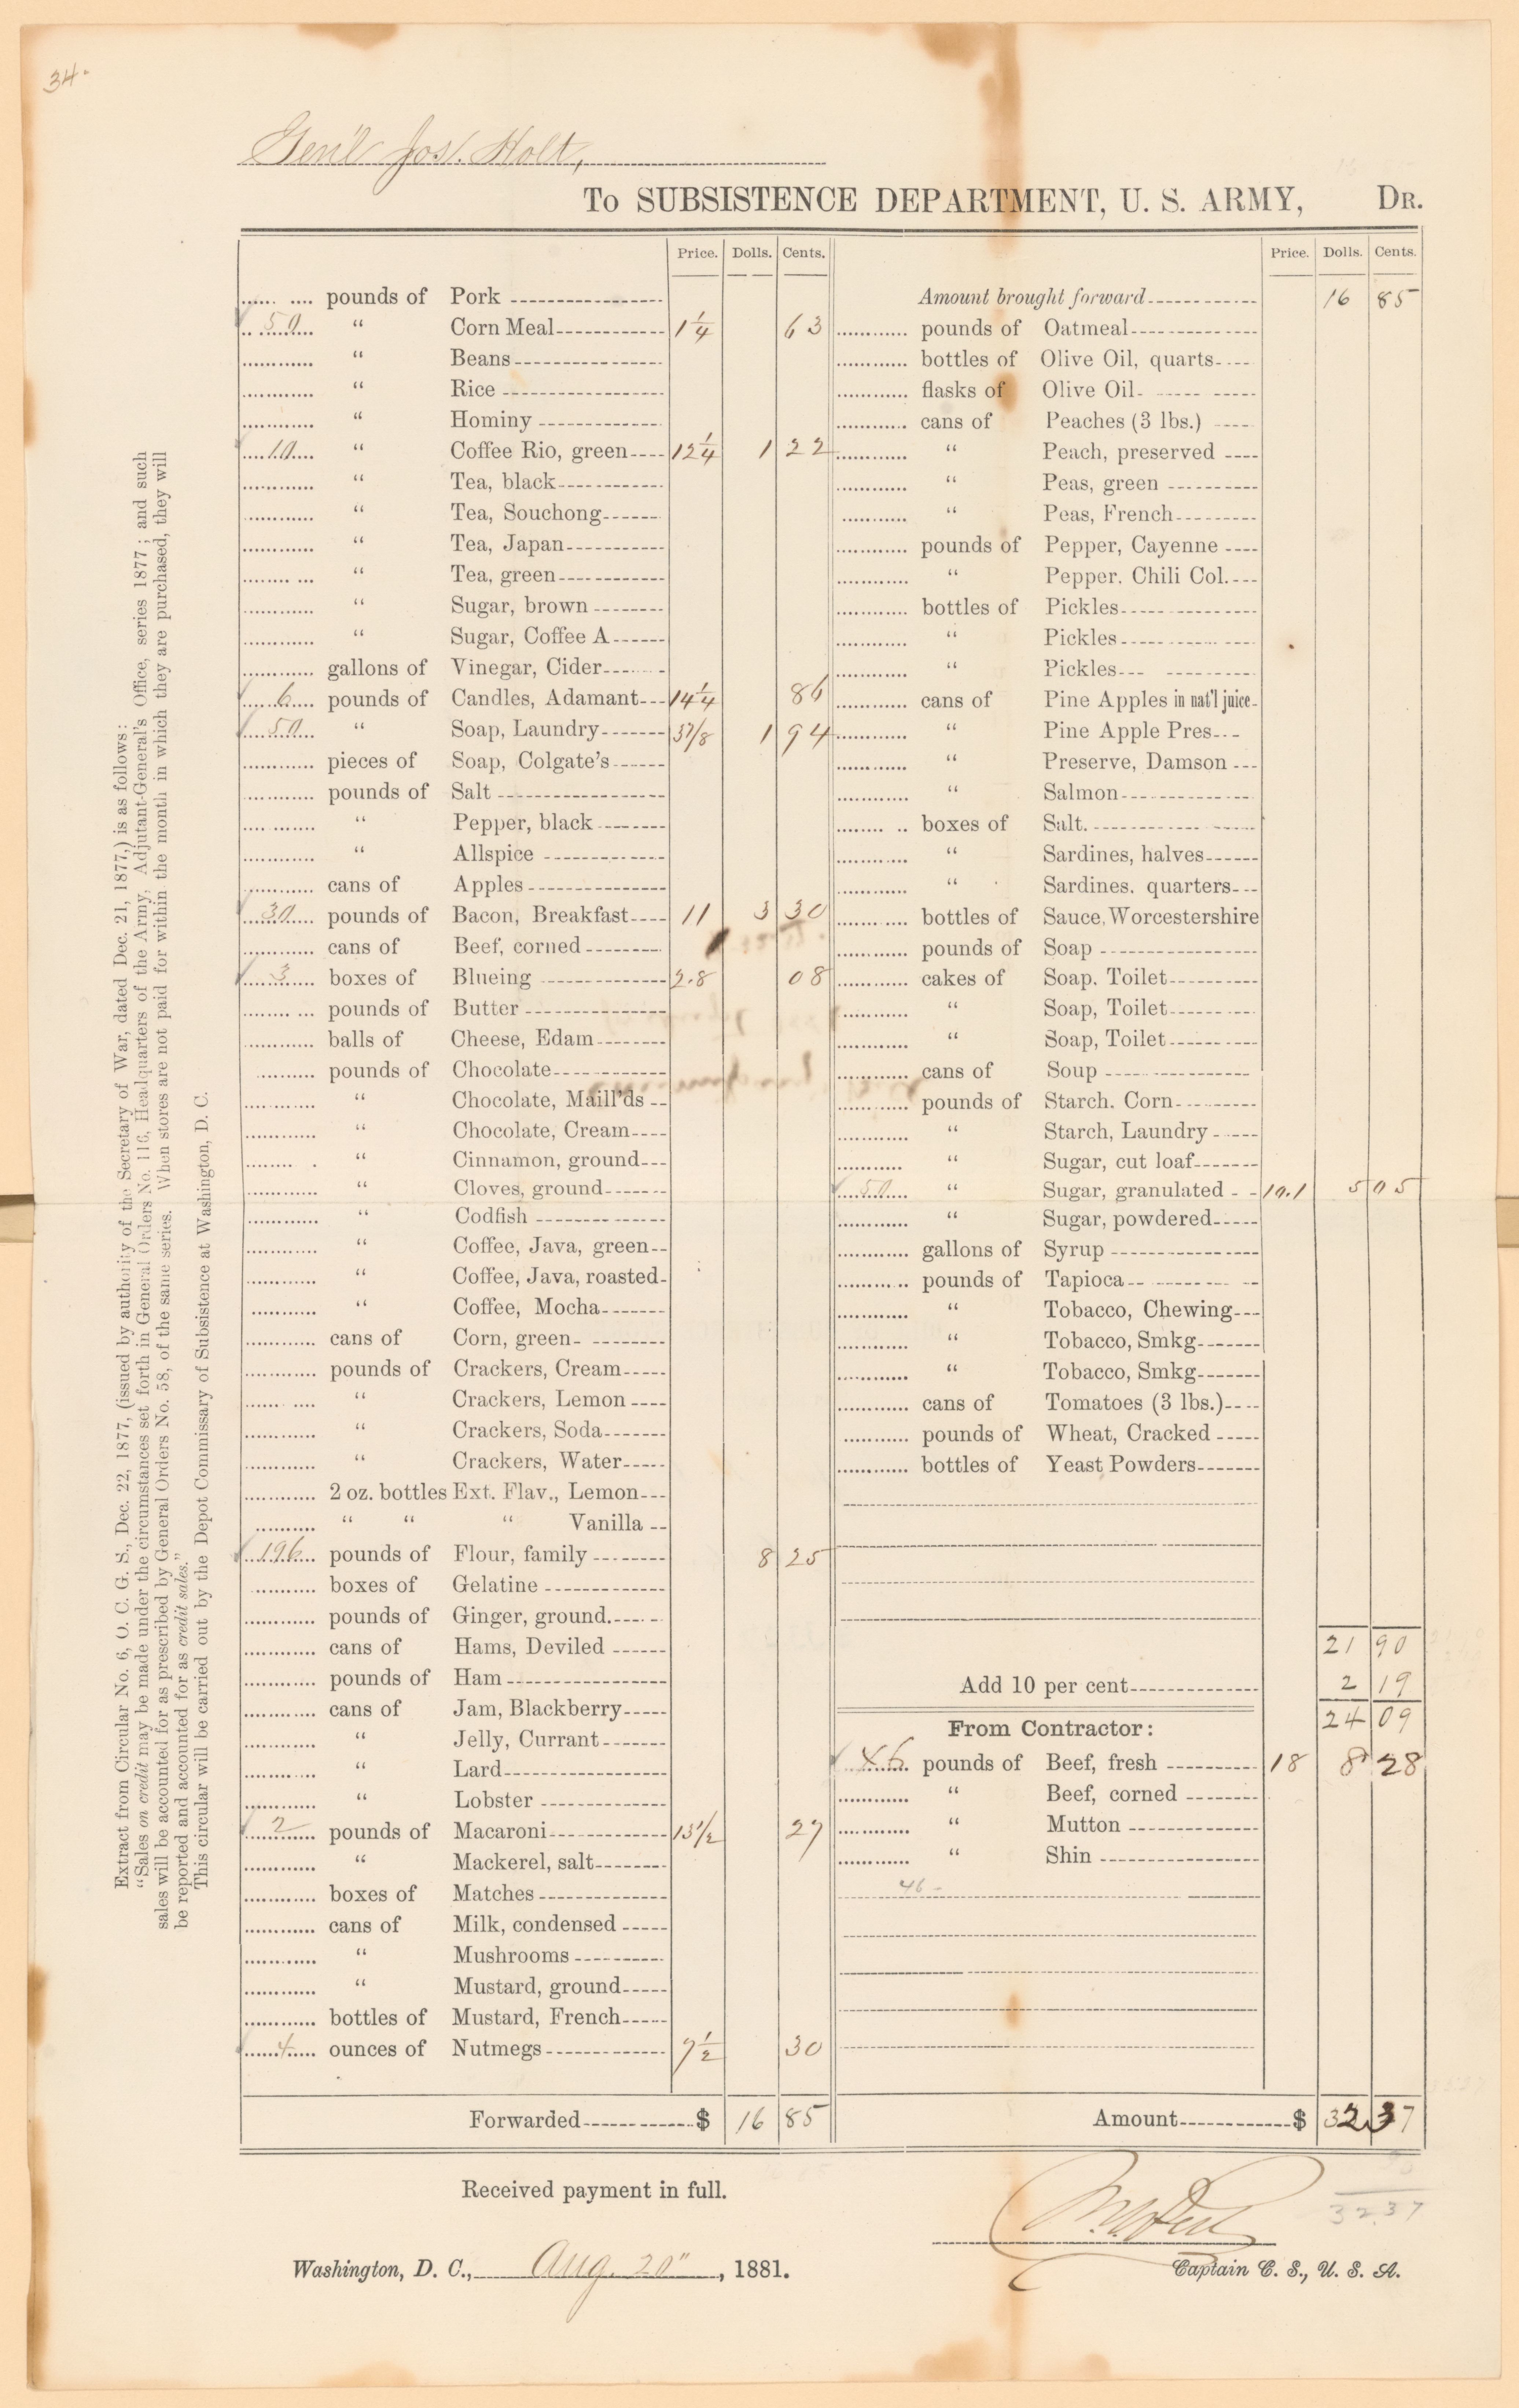 34.
Gen'l Jos. Holt,
To SUBSISTENCE DEPARTMENT, U. S. ARMY, DR.
Price. Dolls. Cents.
pounds of Pork
50 " Corn Meal 1 1/4 63
" Beans
" Rice
" Hominy
10 " Coffee Rio, green 12 1/4 1 22
" Tea, black
" Tea, Souchong
" Tea, Japan
" Tea, green
" Sugar, brown
" Sugar, Coffee A
gallons of Vinegar, Cider
6 pounds of Candles, Adamant 14 1/4 86
50 " Soap, Laundry 3 7/8 1 94
pieces of Soap, Colgate's
pounds of Salt
" Pepper, black
" Allspice
cans of Apples
30 pounds of Bacon, Breakfast 11 3 30
cans of Beef, corned
3 boxes of Blueing 2.8 08
pounds of Butter
balls of Cheese, Edam
pounds of Chocolate
" Chocolate, Maill'ds
" Chocolate, Cream
" Cinnamon, ground
" Cloves, ground
" Codfish
" Coffee, Java, green
" Coffee, Java, roasted
" Coffee, Mocha
cans of Corn, green
pounds of Crackers, Cream
" Crackers, Lemon
" Crackers, Soda
" Crackers, Water
2 oz. bottles Ext. Flav., Lemon
" " " Vanilla
196 pounds of Flour, family 8 25
boxes of Gelatine
pounds of Ginger, ground.
cans of Hams, Deviled
pounds of Ham
cans of Jam, Blackberry
" Jelly, Currant
" Lard
" Lobster
2 pounds of Macaroni 13 1/2 27
" Mackerel, salt
boxes of Matches
cans of Milk, condensed
" Mushrooms
" Mustard, ground
bottles of Mustard, French
4 ounces of Nutmegs 7 1/2 30
Forwarded $ 16 85
Price. Dolls. Cents.
Amount brought forward 16 85
pounds of Oatmeal
bottles of Olive Oil, quarts
flasks of Olive Oil
cans of Peaches (3 lbs.)
" Peach, preserved
" Peas, green
" Peas, French
pounds of Pepper, Cayenne
" Pepper. Chili Col.
bottles of Pickles
" Pickles
" Pickles
cans of Pine Apples in nat'l juice
" Pine Apple Pres
" Preserve, Damson
" Salmon
boxes of Salt.
" Sardines, halves
" Sardines. quarters
bottles of Sauce, Worcestershire
pounds of Soap
cakes of Soap. Toilet
" Soap, Toilet
" Soap, Toilet
cans of Soup
pounds of Starch. Corn
" Starch, Laundry
" Sugar, cut loaf
50 " Sugar, granulated 10.1 5 05
" Sugar, powdered
gallons of Syrup
pounds of Tapioca
" Tobacco, Chewing
" Tobacco, Smkg
" Tobacco, Smkg
cans of Tomatoes (3 lbs.)
pounds of Wheat, Cracked
bottles of Yeast Powders
21 90
Add 10 per cent 2 19
24 09
From Contractor:
46 pounds of Beef, fresh 18 8 28
" Beef, corned
" Mutton
" Shin
46 -
Amount $ 32 37
32.37
Received payment in full.
Washington, D. C., Aug. 20", 1881.
Captain C. S., U. S. A.
Extract from Circular No. 6, O. C. G. S., Dec. 22, 1877, (issued by authority of the Secretary of War, dated Dec. 21, 1877,) is as follows:
"Sales on credit may be made under the circumstances set forth in General Orders No. 116, Headquarters of the Army, Adjutant-General's Office, series 1877; and such
sales will be accounted for as prescribed by General Orders No. 58, of the same series. When stores are not paid for within the month in which they are purchased, they will
be reported and accounted for as credit sales."
This circular will be carried out by the Depot Commissary of Subsistence at Washington, D. C.